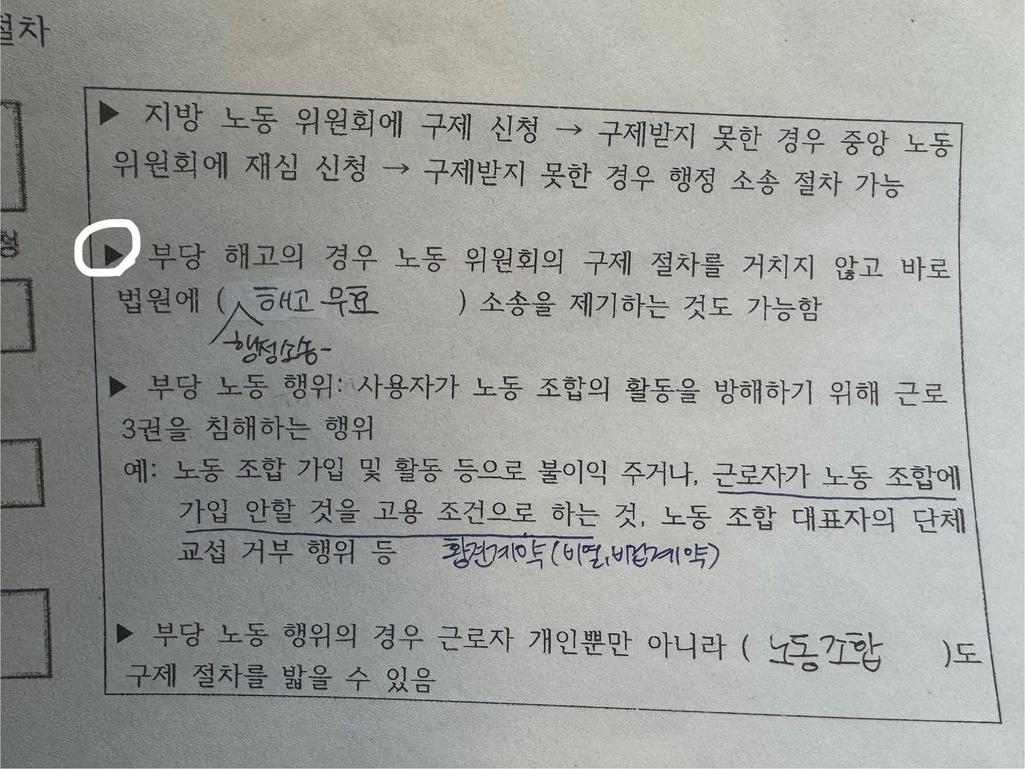 절차
▶ 지방 노동 위원회에 구제 신청 → 구제받지 못한 경우 중앙 노동
위원회에 재심 신청 → 구제받지 못한 경우 행정 소송 절차 가능
청
▶ 부당 해고의 경우 노동 위원회의 구제 절차를 거치지 않고 바로
법원에 ( 해고 무효 ) 소송을 제기하는 것도 가능함
행정소송
▶ 부당 노동 행위: 사용자가 노동 조합의 활동을 방해하기 위해 근로
3권을 침해하는 행위
예: 노동 조합 가입 및 활동 등으로 불이익 주거나, 근로자가 노동 조합에
가입 안할 것을 고용 조건으로 하는 것, 노동 조합 대표자의 단체
교섭 거부 행위 등 황견계약(비열,비겁계약)
▶ 부당 노동 행위의 경우 근로자 개인뿐만 아니라 ( 노동조합 )도
구제 절차를 밟을 수 있음